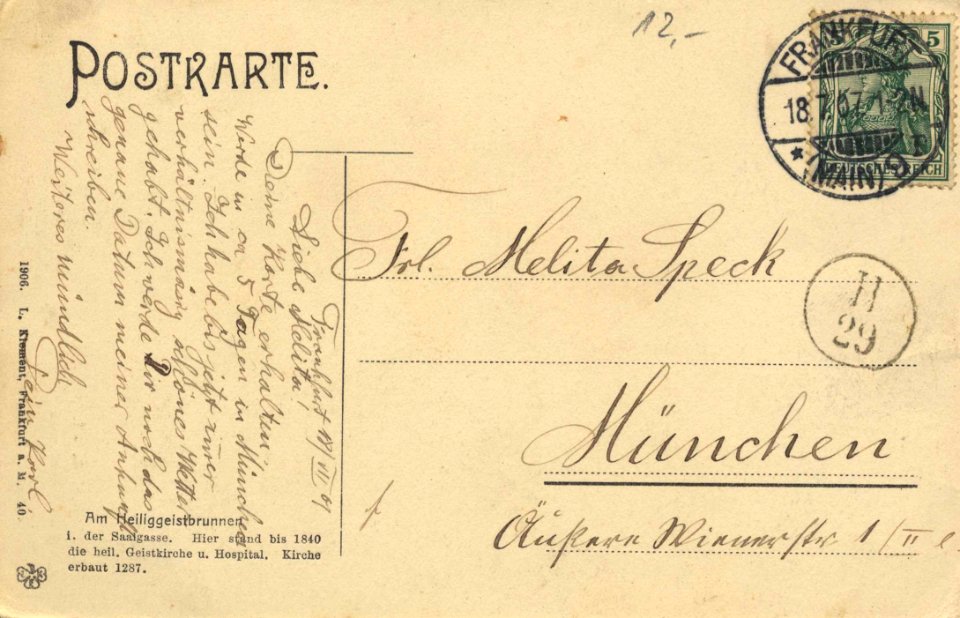 12,-
POSTKARTE.
FRANKFURT
18.7.07.
* (MAIN) 9
5
DEUTSCHES REICH
Frankfurt 18/VII 07
Liebe Melita!
Deine Karte erhalten.
Werde in ca 5 Tagen in München
sein. Ich habe bis jetzt immer
verhältnismässig schönes Wetter
gehabt. Ich werde Dir noch das
genaue Datum meiner Ankunft
schreiben.
Weiteres mündlich
Dein Karl.
Frl. Melita Speck
II
29
München
Äußere Wienerstr 1/II
1906. L. Klement, Frankfurt a. M. 40
Am Heiliggeistbrunnen
i. der Saalgasse. Hier stand bis 1840
die heil. Geistkirche u. Hospital. Kirche
erbaut 1287.